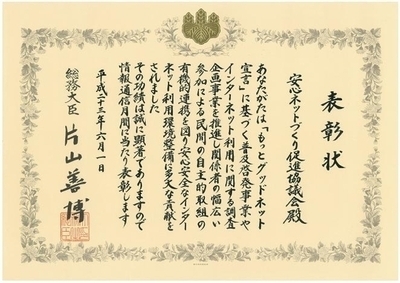 表彰状
安心ネットづくり促進協議会殿
あなたがたは「もっとグッドネット
宣言」に基づく普及啓発事業や
インターネット利用に関する調査
企画事業を推進し関係者の幅広い
参加による民間の自主的取組の
有機的連携を図り安心安全なインター
ネット利用環境整備に多大な貢献を
されました
その功績は誠に顕著でありますので
情報通信月間に当たり表彰します
平成二十三年六月一日
総務大臣 片山善博